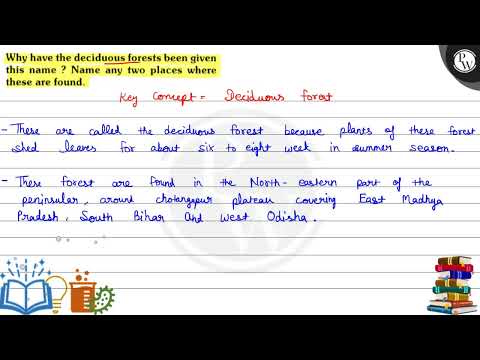 Why have the deciduous forests been given
this name ? Name any two places where
these are found.
Key Concept = Deciduous forest
- These are called the deciduous forest because plants of these forest
shed leaves for about six to eight week in summer season.
- These forest are found in the North-eastern part of the
peninsular, around chotanagpur plateau covering East Madhya
Pradesh, South Bihar and West Odisha.